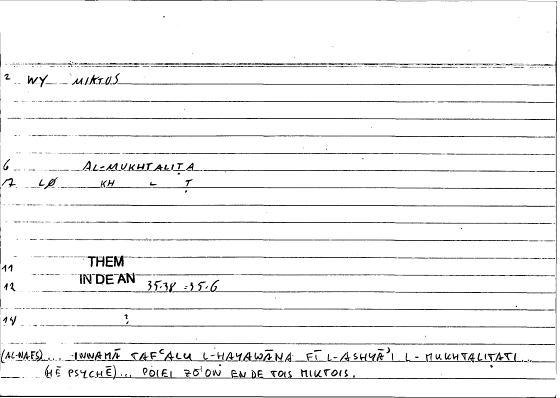 2 WY MIKTOS
6 AL-MUKHTALIṬA
7 LØ KH L Ṭ
11 THEM
12 IN DE AN 35.38 = 35.6
14 ?
(AL-NAFS)... INNAMĀ TAFᶜALU L-ḤAYAWĀNA FĪ L-ASHYĀʾI L-MUKHTALIṬATI...
(HĒ PSYCHĒ)... POIEI ZŌON EN DE TOIS MIKTOIS.